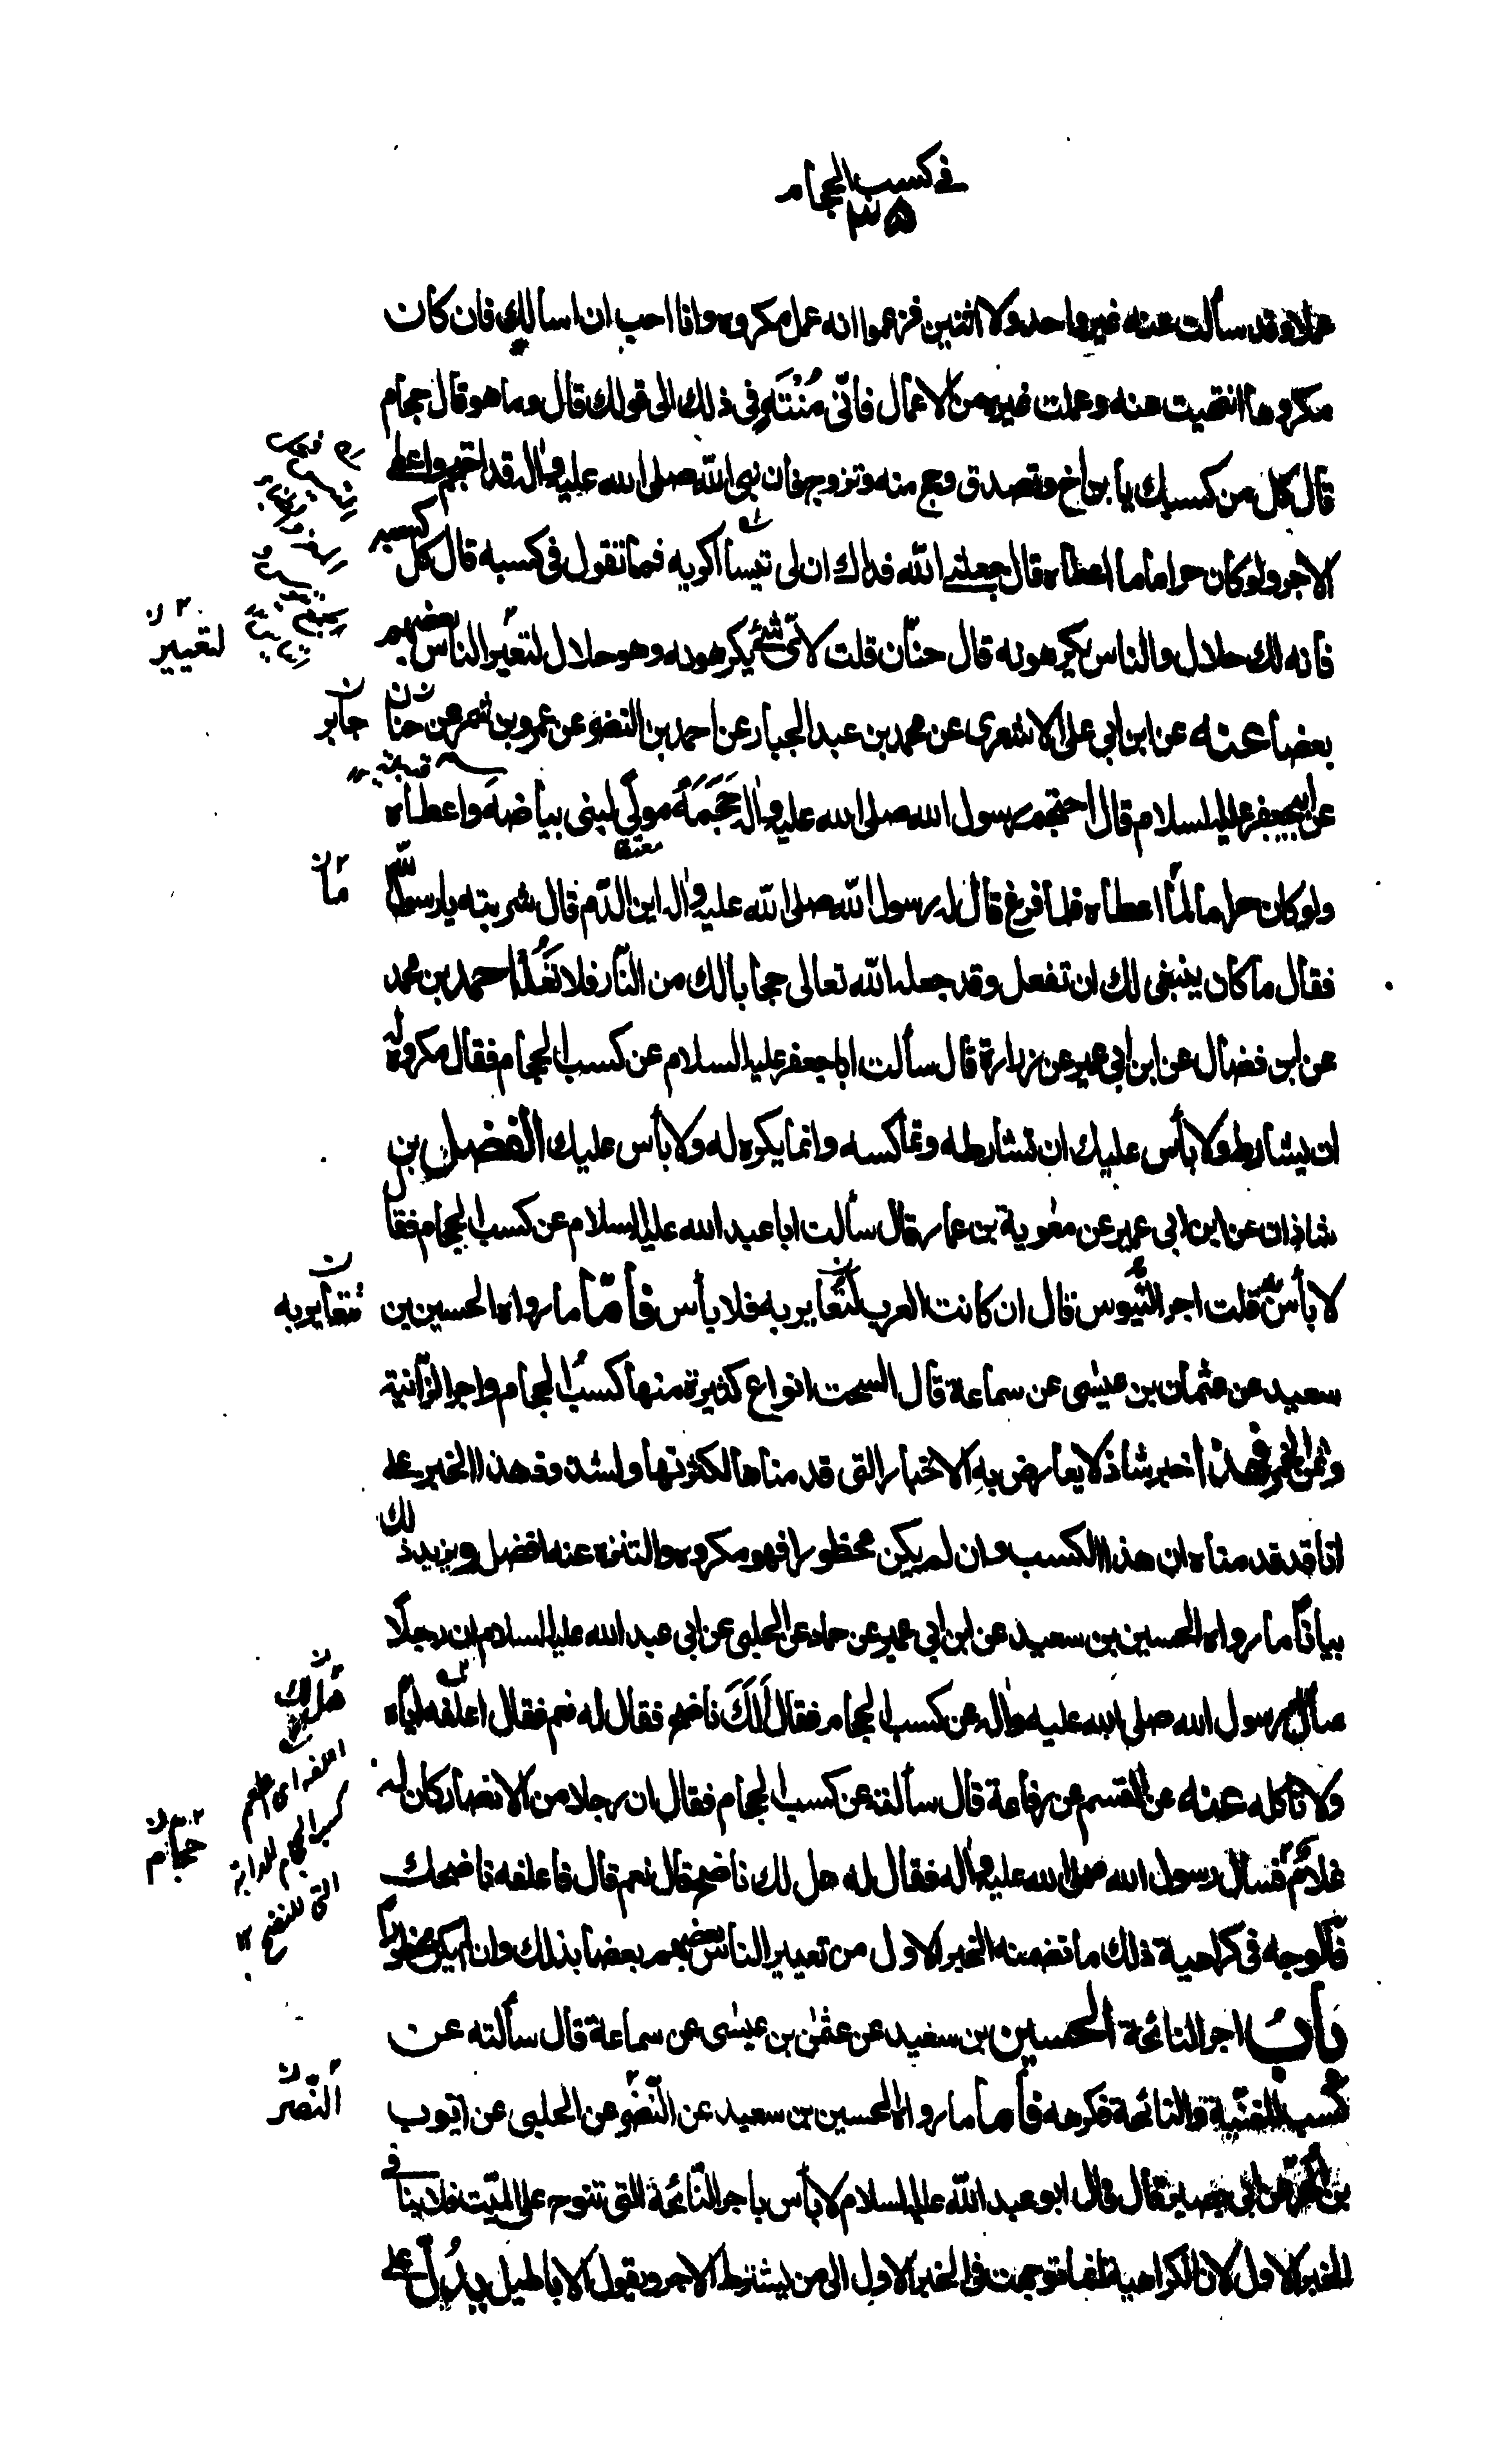 في كسب الحجام
٣٥
عملا وقد سألت عنه غير واحد ولا اثنين فزعموا انه عمل مكروه وانا احب ان اسألك فان كان
مكروها انتهيت عنه وعملت غيره من الاعمال فانّى مُنْتَهٍ فى ذلك الى قولك قال وما هو قال حجام
قال كل من كسبك يا بن اخ وتصدق وحج منه وتزوج فان نبى الله صلى الله عليه واله قد احتجم واعطى
الاجر ولو كان حراما ما اعطاه قال جعلنى الله فداك ان لى تيسا اكريه فما تقول فى كسبه قال كل كسبه
فانه لك حلال والناس يكرهونه قال حنّان قلت لاىّ شئ يكرهونه وهو حلال لتعيّر الناس بعضهم
لتعيير
بعضا عنه عن ابن ابي على الاشعرى عن محمد بن عبد الجبار عن احمد بن النضر عن عمرو بن شمر عن حنان
جابر
عن ابى جعفر عليه السلام قال احتجم رسول الله صلى الله عليه واله حَجَمَهُ مولًى لبنى بياضه واعطاه
معتقا
ولو كان حراما لمّا اعطاه فلما فرغ قال له رسول الله صلى الله عليه واله اين الدّم قال شربته يا رسول الله
ما
فقال ما كان ينبغى لك ان تفعل وقد جعله الله تعالى حجابا لك من النّار فلا تَعُد احمد بن محمد
عن ابن فضال عن ابن ابي عمير عن زرارة قال سألت ابا جعفر عليه السلام عن كسب الحجام فقال مكروه له
ان يشارط ولا بأس عليك ان تشارطه وتماكسه وانما يكره له ولا بأس عليك الفضل بن
شاذان عن ابن ابى عمير عن معٰوية بن عمار قال سألت ابا عبد الله عليه السلام عن كسب الحجام فقال
لا بأس به قلت اجر التّيوس قال ان كانت العرب لتُعاير به فلا بأس فأمّا ما رواه الحسين بن
تتعاير به
سعيد عن عثمان بن عيسٰى عن سماعة قال السحت انواع كثيرة منها كسبُ الحجام واجر الزّانية
وثمن الخمر فهذا خبر شاذ لا يعارض به الاخبار التى قد مناها لكثرتها ولشذوذ هذا الخبر على
انا قد قدمناه ان هذا الكسب وان لم يكن محظورا فهو مكروه والتنزه عنه افضل ويزيد ذلك
بيانًا ما رواه الحسين بن سعيد عن ابن ابي عمير عن حماد عن الحلبى عن ابى عبد الله عليه السلام ان رجلًا
سأل رسول الله صلى الله عليه واله عن كسب الحجام فقال أَلَكَ ناضح فقال له نعم فقال اعلفه اياه
هَل لك
ولا تاكله عنه عن القسم عن رفاعة قال سألته عن كسب الحجام فقال ان رجلا من الانصار كان له
غلامٌ فسأل رسول الله صلى الله عليه واله فقال له هل لك ناضح قال نعم قال فاعلفه ناضحك
حجام
اعلفه اى اطعم
كسب الحجام للدابة
التى للنضح ١٢
فالوجه فى كراهية ذلك ما تضمنه الخبر الاول من تعيير الناس بعضهم بعضا بذلك وان لم يكن محظورًا
باب اجر النائحة الحسين بن سعيد عن عثمٰن بن عيسٰى عن سماعة قال سألته عن
كسب المغنّية والنائحة فكرهه فأما ما رواه الحسين بن سعيد عن النّضر عن الحلبى عن ايّوب
النّصر
بن الحر عن ابى بصير قال قال ابو عبد الله عليه السلام لا بأس باجر النّائحة التى تنوح على الميّت فلا ينافى
الخبر الاول لان الكراهية انما توجهت فى الخبر الاول الى من يشترط الاجر ويقول الاباطيل يدُلّ على